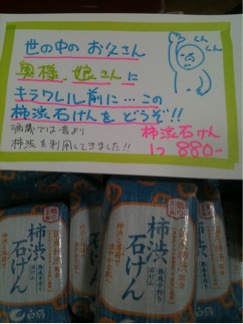 世の中の お父さん
奥様 娘さんに
キラワレル前に…この
柿渋石けんを どうぞ!!
酒蔵では昔より
柿渋を利用してきました!!
柿渋石けん
1コ 880-
くん
くん
柿渋
石けん
白鶴
柿渋
石けん